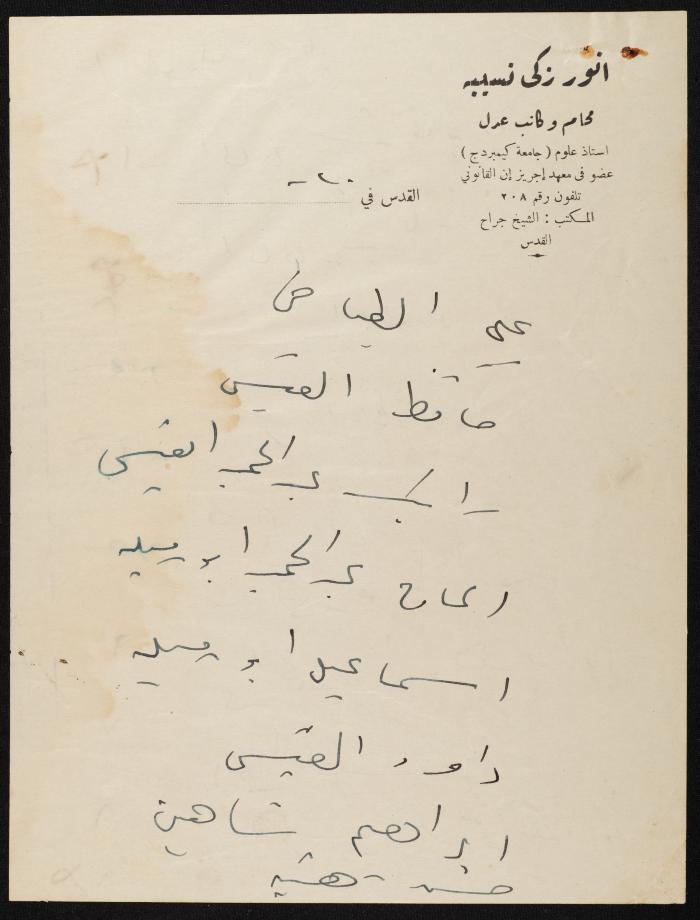 انور زكي نسيبه
محام وكاتب عدل
استاذ علوم ( جامعة كيمبردج )
عضو في معهد إجريز إن القانوني
تلفون رقم ٢٠٨
المكتب : الشيخ جراح
القدس
القدس في
علي
حافظ القيسي
راكب عبد الحميد القيسي
الحاج عبد الحميد ابو
اسماعيل ابو
داود القيسي
ابراهيم شاهين